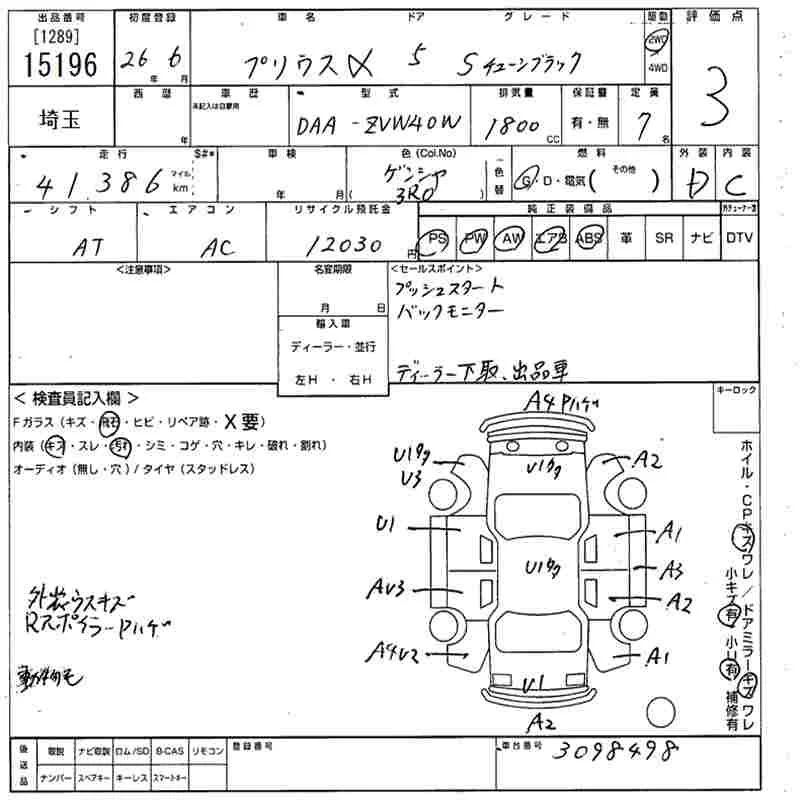 出品番号 初度登録 車名 ドア グレード 駆動 評価点
[1289]
15196 26年 6月 プリウスα 5 Sチューンブラック 2WD 4WD 3
埼玉 西暦 年 車歴 未記入は自家用 型式 DAA-ZVW40W 排気量 1800 CC 保証書 有・無 定員 7名
走行 41,386 マイル km S#* 車検 年 月 色(Col.No) 3R0 色替 燃料 G・D・電気( その他 ) 外装 D 内装 C
シフト エアコン リサイクル預託金 純正装備品
AT AC 12030円 PS PW AW エアB ABS 革 SR ナビ DTV
<注意事項> 名変期限 <セールスポイント>
月 日 プッシュスタート
輸入車 バックモニター
ディーラー・並行
左H・右H ディーラー下取、出品車
キーロック
< 検査員記入欄 >
Fガラス(キズ・飛石・ヒビ・リペア跡・X要)
内装(キズ・スレ・汚れ・シミ・コゲ・穴・キレ・破れ・割れ)
オーディオ(無し・穴)/タイヤ(スタッドレス)
A4 Pハゲ
U1タタ
U3
U1タタ
A2
U1
A1
U1タタ
A3
AU3
A2
A4U2
A1
U1
A2
外装ウスキズ
Rスポイラー Pハゲ
ホイル・CPキズワレ/ドアミラーキズワレ
小キズ有 小U有 補修有
後送品 取説 ナビ取説 ロム/SD B-CAS リモコン 登録番号 車台番号 3098498
ナンバー スペアキー キーレス スマートキー